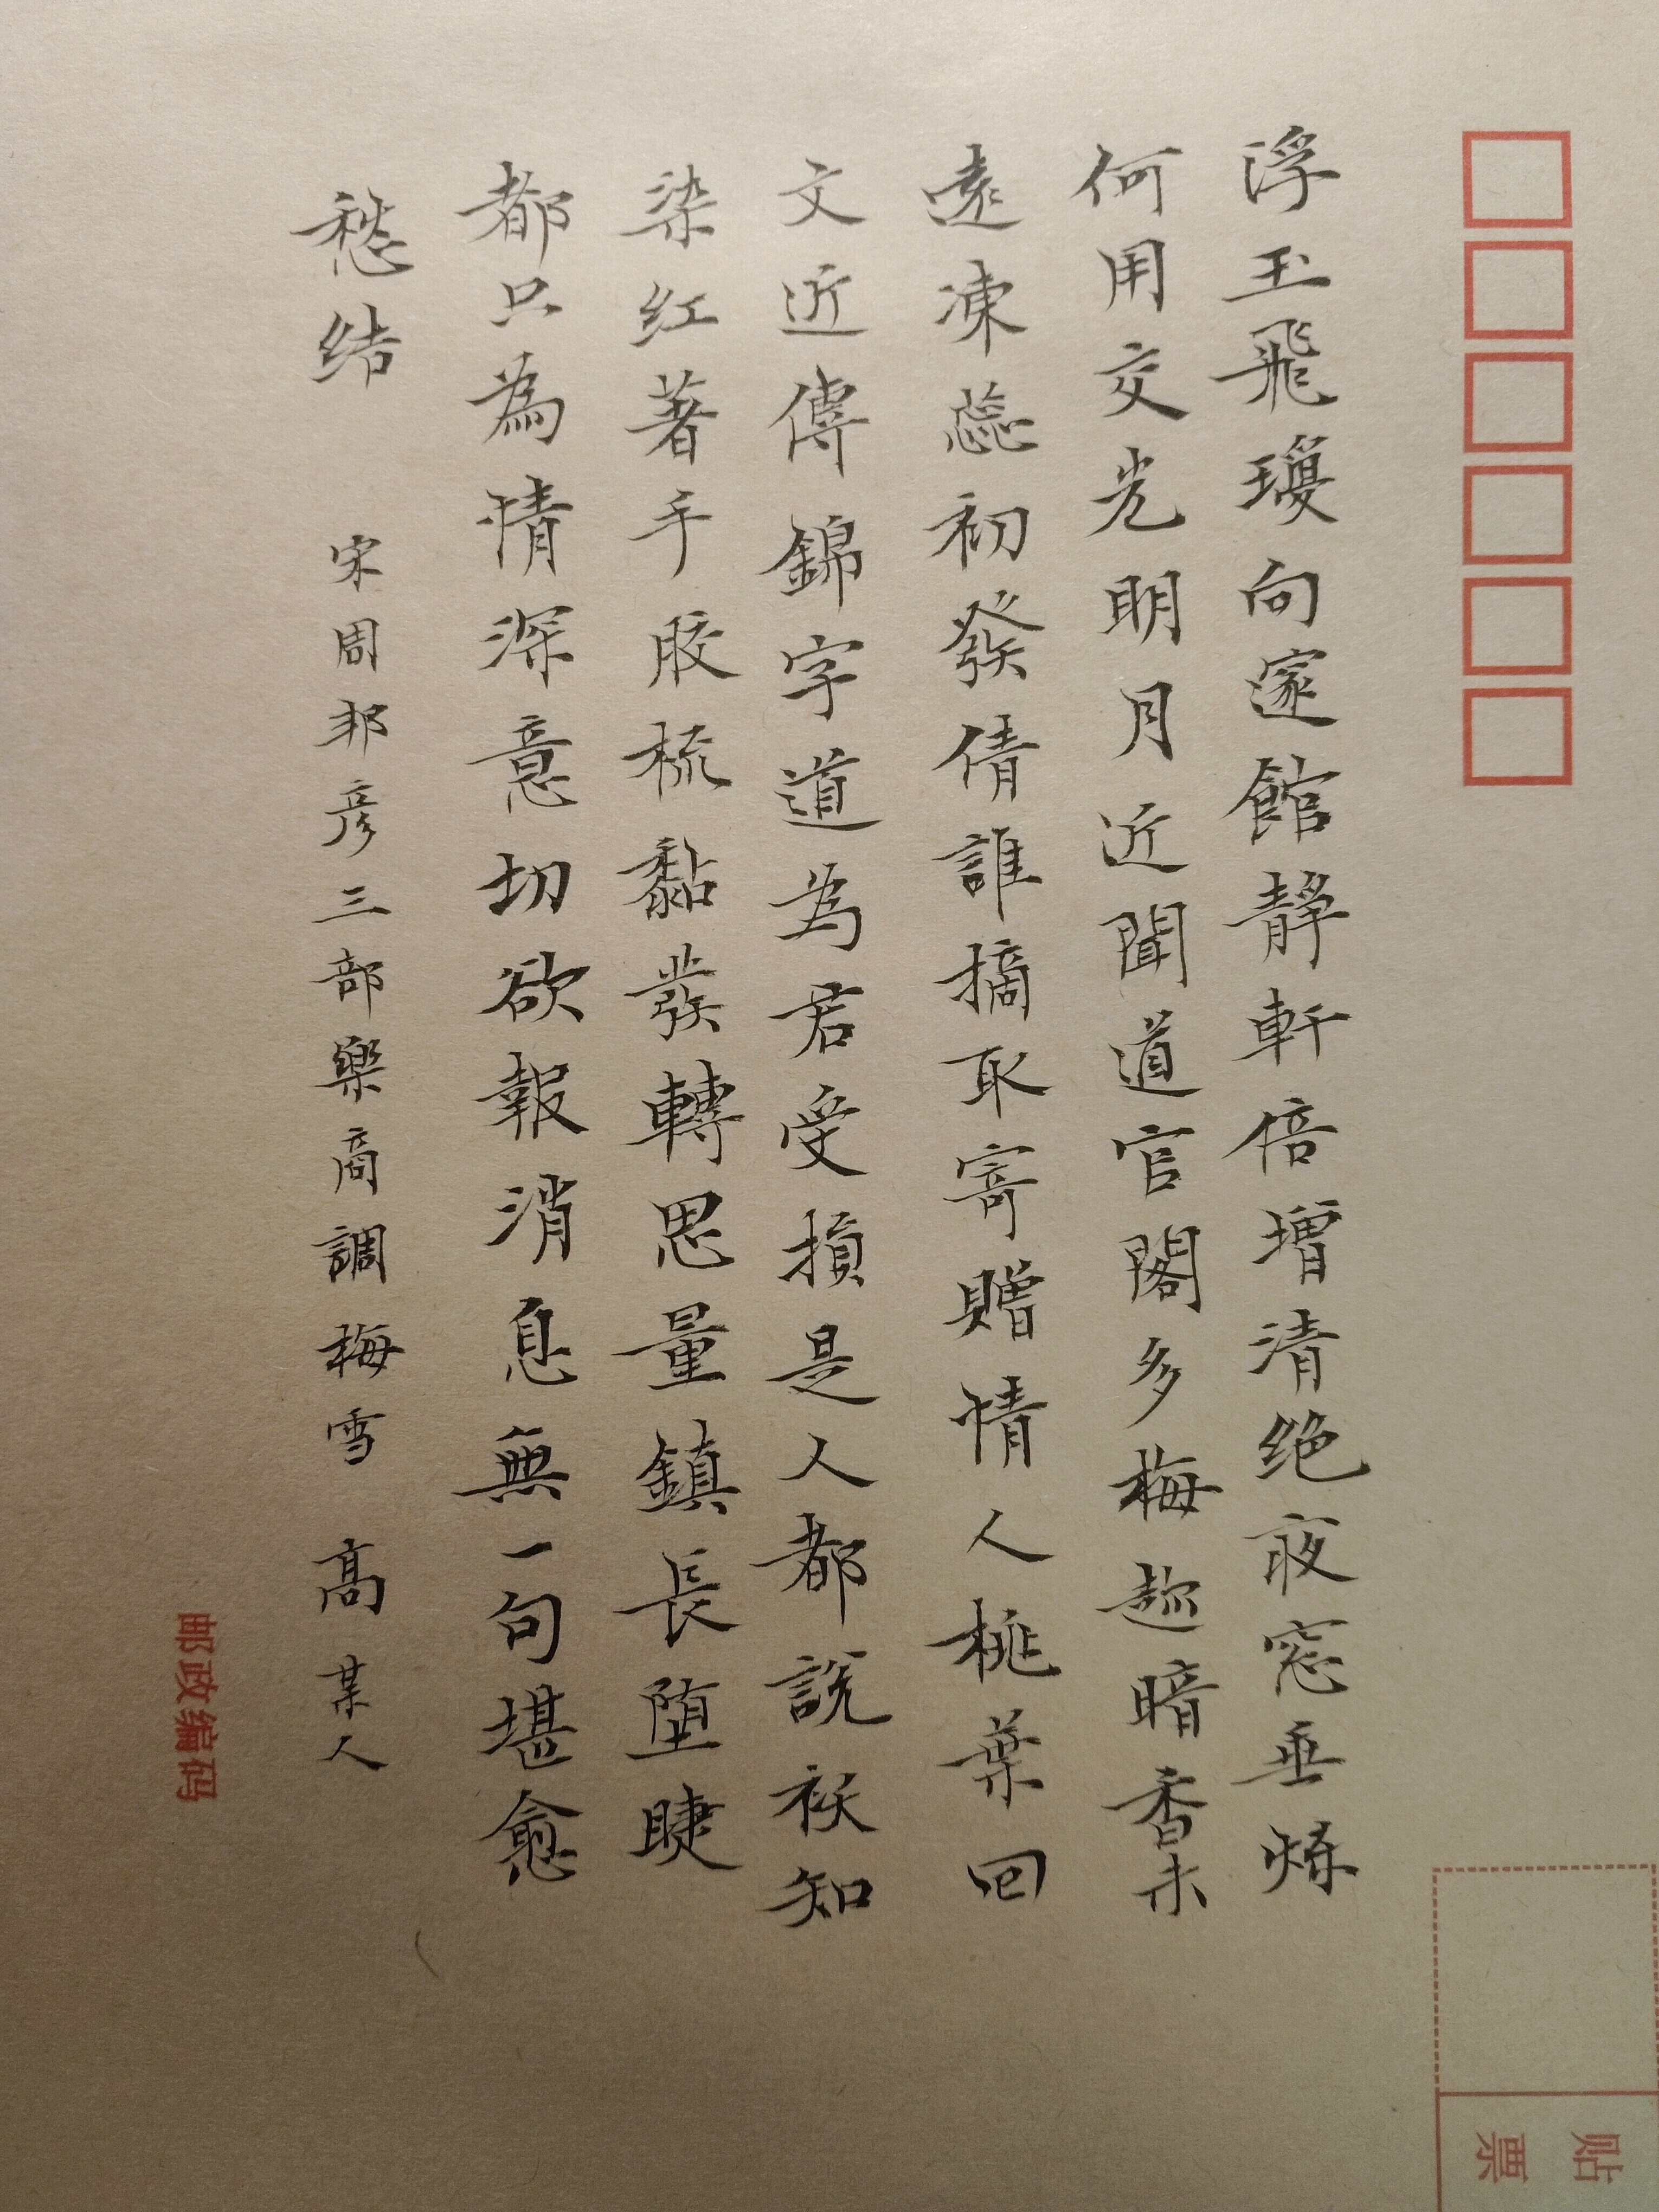 浮玉飛瓊向邃館靜軒倍增清绝夜窓垂練
何用交光明月近聞道官閣多梅趁暗香未
遠凍蕊初發倩誰摘取寄贈情人桃葉回
文近傳錦字道為君受損是人都說祅知
染红著手胶梳黏發轉思量鎮長堕睫
都只為情深意切欲報消息無一句堪愈
愁结 宋周邦彦三部樂商調梅雪 高某人
贴
票
邮政编码